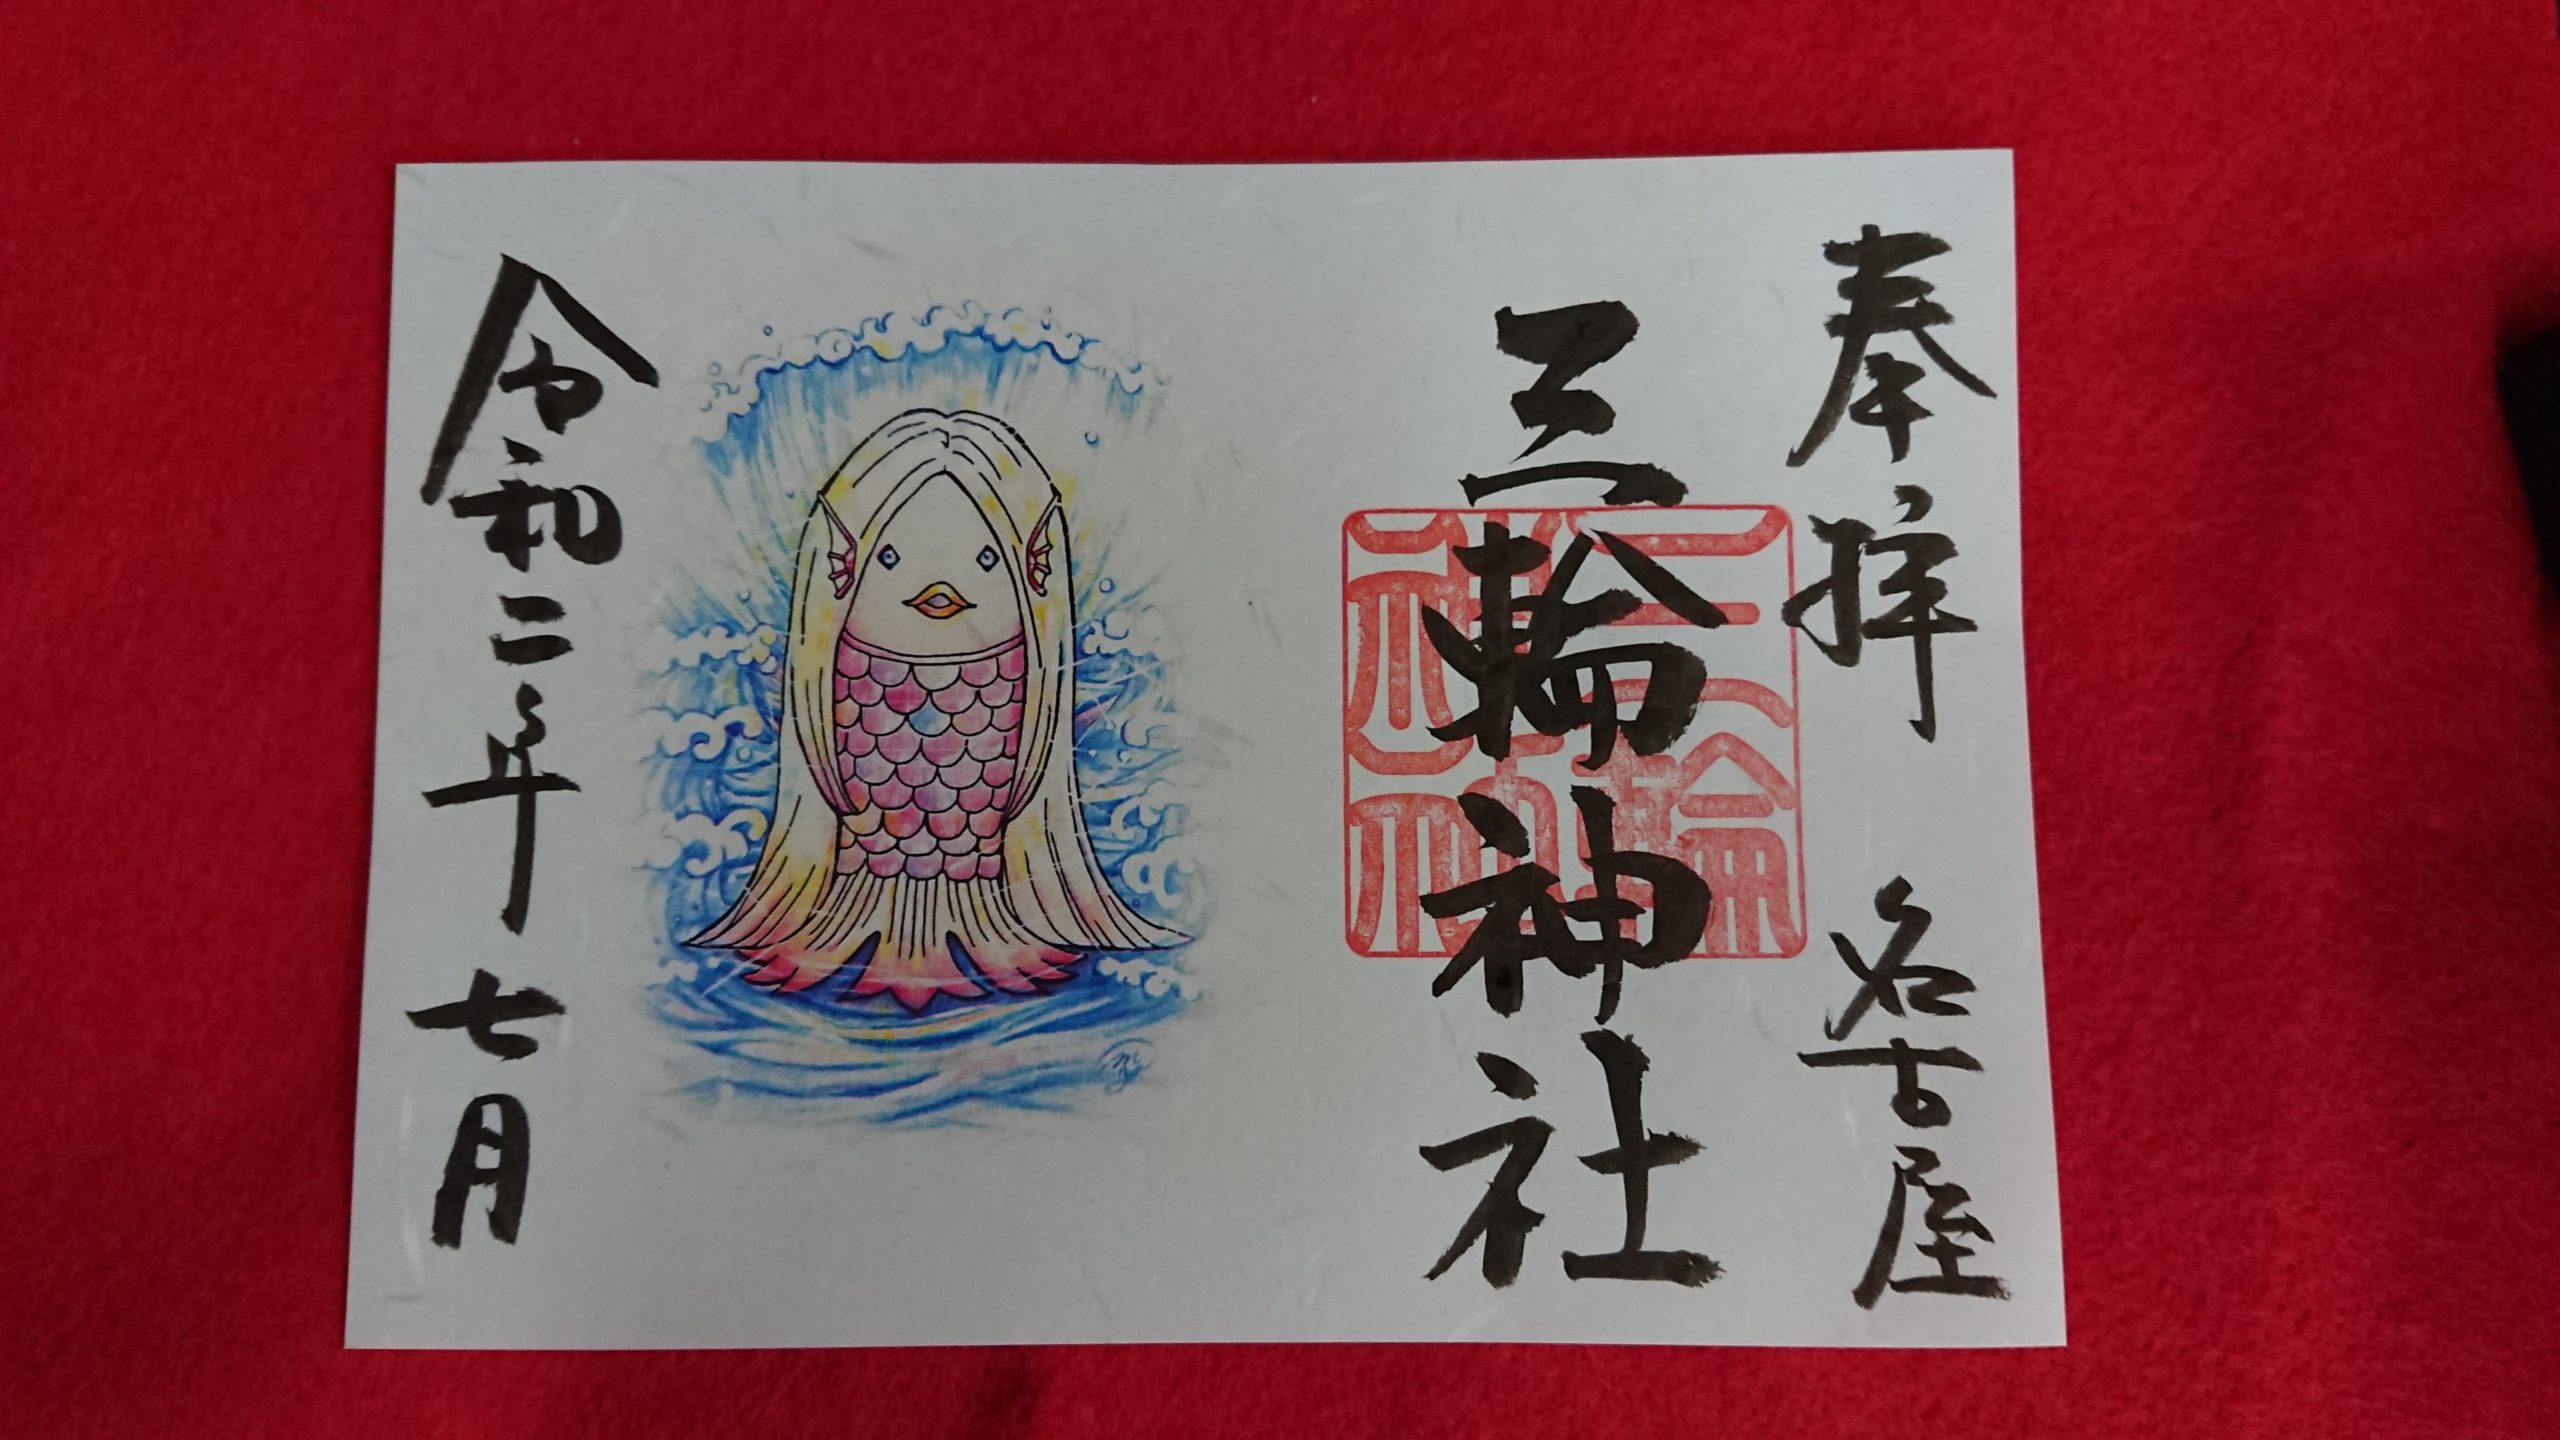 奉拝 名古屋
三輪神社
三輪
神社
令和二年 七月